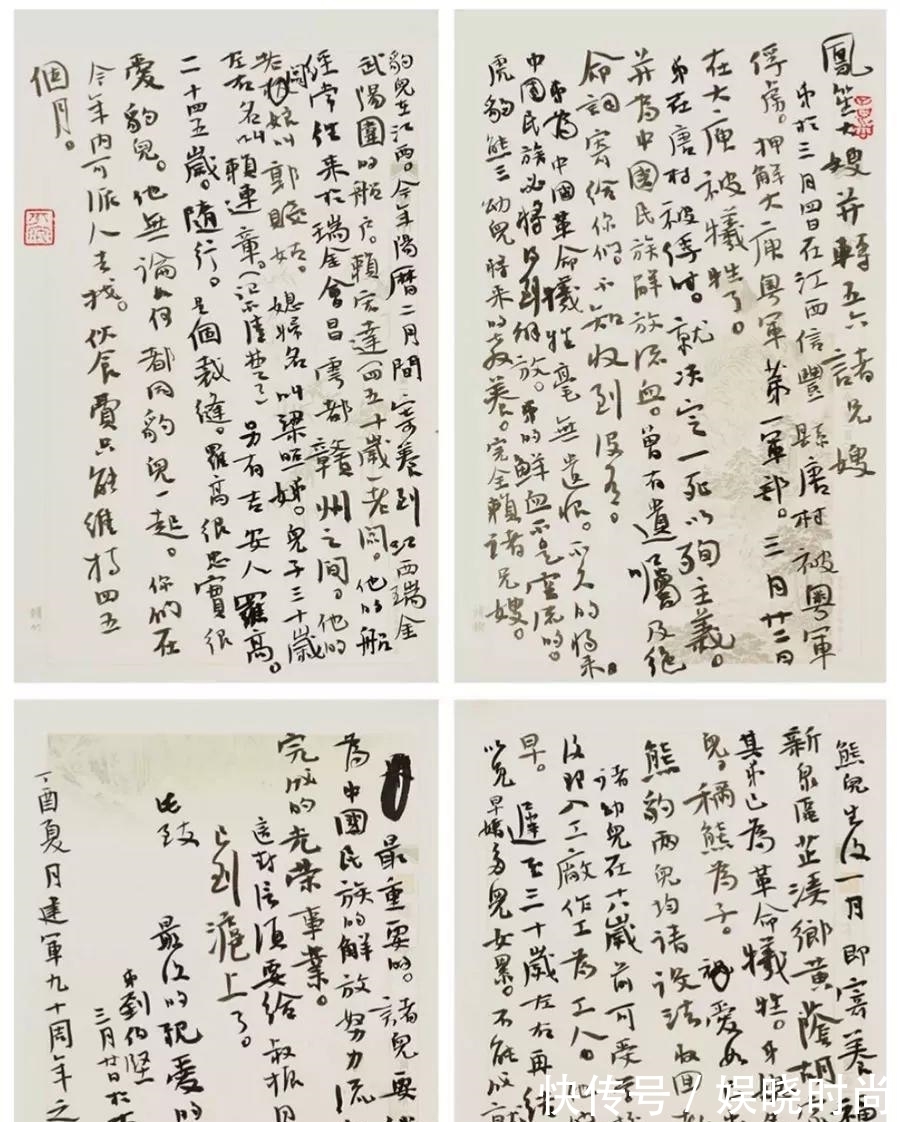 鳳笙大嫂并轉五六諸兄嫂
弟於三月四日在江西信豐縣唐村被粵軍
俘虜。押解大庾粵軍第一軍部。三月廿二日
在大庾被犧牲了。
弟在唐村被俘时。就决定一死以殉主義。
并為中國民族解放流血。曾有遺囑及绝
命詞寄给你们。不知收到没有。
弟為中國革命犧牲毫無遺恨。不久的将来
中國民族必将得到解放。弟的鲜血不是空流的。
虎豹熊三幼兒将来的教養。完全賴諸兄嫂。
豹兒在江西。今年陽曆二月間寄養到江西瑞金
武陽圍的船户。賴宏達四五十歲一老闆。他的船
经常往来於瑞金會昌雩都贛州之间。他的
老闆娘叫郭贱姑。媳婦名叫梁照娣。兒子三十歲
左右名叫賴連章。(记不清楚了)另有吉安人羅高。
二十四五歲。隨行。是個裁縫。羅高很忠實很
愛豹兒。他無論如何都同豹兒一起。你们在
今年内可派人去找。伙食費只能维持四五
個月。
熊兒生後一月即寄養福
新泉區芷溪鄉黄蔭胡
其弟已為革命犧牲。弟
兒。稱熊為子。愛如
熊豹兩兒均請設法收回
諸幼兒在十八歲前可受
後即入工廠作工為工人。他
早。遲至三十歲左右再结
以免早婚多兒女累。不能成就
最重要的。諸兒要继
為中國民族的解放努力流
完成的光荣事業。
這封信须要给叔振同
已到滬上了。
此致 最後的親愛的
弟劉伯堅
三月廿日於大
丁酉夏月建軍九十周年之
快传号/娱晓时尚